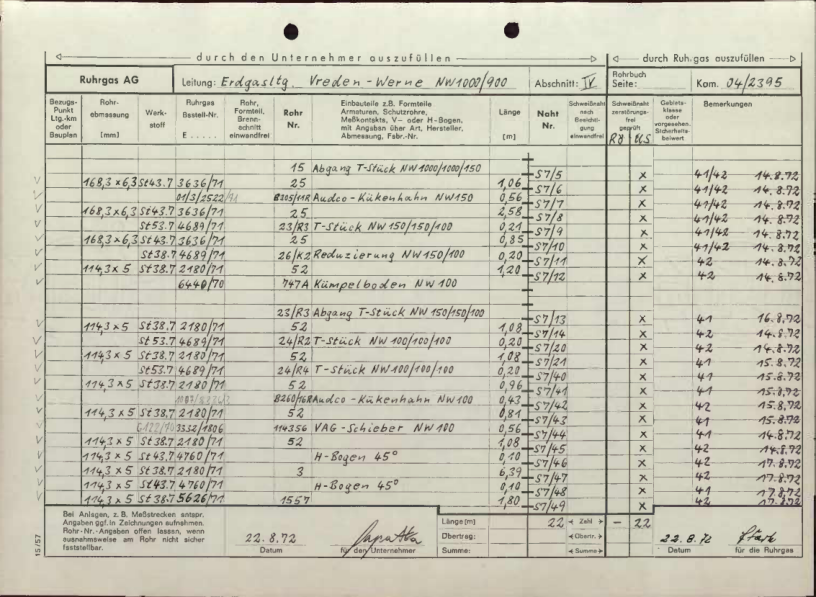 durch den Unternehmer auszufüllen
durch Ruhrgas auszufüllen
Ruhrgas AG
Leitung: Erdgasltg. Vreden - Werne NW 1000/900
Abschnitt: IV
Rohrbuch Seite:
Kom. 04/2395
Bezugs-Punkt Ltg.-km oder Bauplan
Rohr-abmessung [mm]
Werk-stoff
Ruhrgas Bestell-Nr. E.....
Rohr, Formteil, Brenn-schnitt einwandfrei
Rohr Nr.
Einbauteile z.B. Formteile Armaturen, Schutzrohre, Meßkontakts, V- oder H-Bogen. mit Angaben über Art, Hersteller, Abmessung, Fabr.-Nr.
Länge [m]
Naht Nr.
Schweißnaht nach Besichti-gung einwandfrei
Schweißnaht zerstörungs-frei geprüft
Rö US
Gebiets-klasse oder vorgesehen. Sicherheits-beiwert
Bemerkungen
15 Abgang T-Stück NW 1000/1000/150
S7/5 x 41/42 14.8.72
168,3 x 6,3 St43.7 3636/71 25 1,06
S7/6 x 41/42 14.8.72
01/3/2522/71 B205/11R Audco-Kükenhahn NW 150 0,56
S7/7 x 41/42 14.8.72
168,3 x 6,3 St43.7 3636/71 25 2,58
S7/8 x 41/42 14.8.72
St53.7 4689/71 23/R3 T-Stück NW 150/150/100 0,21
S7/9 x 41/42 14.8.72
168,3 x 6,3 St43.7 3636/71 25 0,85
S7/10 x 41/42 14.8.72
St38.7 4689/71 26/K2 Reduzierung NW 150/100 0,20
S7/11 x 42 14.8.72
114,3 x 5 St38.7 2180/71 52 1,20
S7/12 x 42 14.8.72
6440/70 747A Kümpelboden NW 100
23/R3 Abgang T-Stück NW 150/150/100
S7/13 x 41 16.8.72
114,3 x 5 St38.7 2180/71 52 1,08
S7/14 x 42 14.8.72
St53.7 4689/71 24/R2 T-Stück NW 100/100/100 0,20
S7/20 x 42 14.8.72
114,3 x 5 St38.7 2180/71 52 1,08
S7/21 x 41 15.8.72
St53.7 4689/71 24/R4 T-Stück NW 100/100/100 0,20
S7/40 x 41 15.8.72
114,3 x 5 St38.7 2180/71 52 0,96
S7/41 x 41 15.8.72
B260/16R Audco-Kükenhahn NW 100 0,43
S7/42 x 42 15.8.72
114,3 x 5 St38.7 2180/71 52 0,81
S7/43 x 41 15.8.72
3332/1806 114356 VAG-Schieber NW 100 0,56
S7/44 x 41 14.8.72
114,3 x 5 St38.7 2180/71 52 1,08
S7/45 x 42 14.8.72
114,3 x 5 St43.7 4760/71 H-Bogen 45° 0,10
S7/46 x 42 17.8.72
114,3 x 5 St38.7 2180/71 3 6,39
S7/47 x 42 17.8.72
114,3 x 5 St43.7 4760/71 H-Bogen 45° 0,10
S7/48 x 41 17.8.72
114,3 x 5 St38.7 5626/71 1557 1,80
S7/49 x 42 17.8.72
Bei Anlagen, z. B. Meßstrecken entspr.
Angaben ggf. in Zeichnungen aufnehmen.
Rohr-Nr.-Angaben offen lassen, wenn
ausnahmsweise am Rohr nicht sicher
feststellbar.
22.8.72
Datum
für den Unternehmer
Länge [m]
Übertrag:
Summe:
22 Zahl - 22
Übertr.
Summe
22.8.72
Datum
für die Ruhrgas
15/57